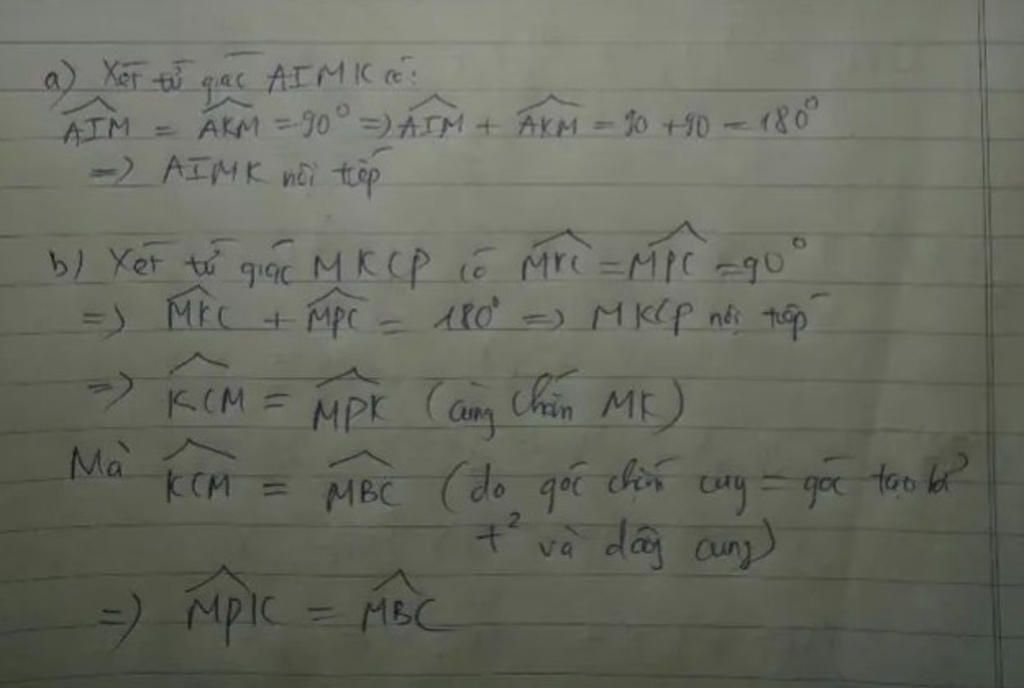 a) Xét tứ giác AIMK có:
\widehat{AIM} = \widehat{AKM} = 90° => \widehat{AIM} + \widehat{AKM} = 90 + 90 = 180°
=> AIMK nội tiếp
b) Xét tứ giác MKCP có \widehat{MKC} = \widehat{MPC} = 90°
=> \widehat{MKC} + \widehat{MPC} = 180° => MKCP nội tiếp
=> \widehat{KCM} = \widehat{MPK} (cùng chắn MK)
Mà \widehat{KCM} = \widehat{MBC} (do góc chắn cung = góc tạo bởi
t² và dây cung)
=> \widehat{MPK} = \widehat{MBC}